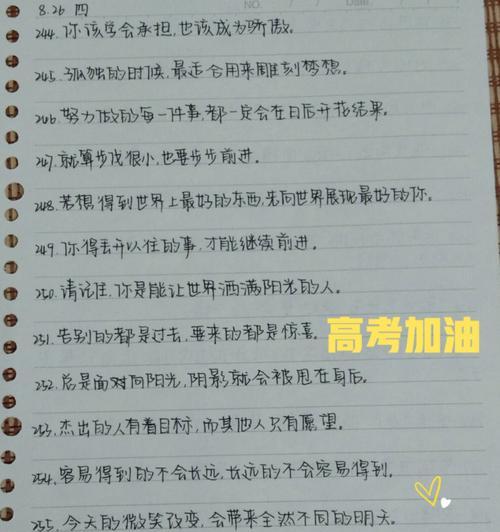 8.26 四
NO.
Date
244.你该学会承担,也该成为骄傲。
245.孤独的时候,最适合用来雕刻梦想。
246.努力做的每一件事,都一定会在日后开花结果。
247.就算步伐很小,也要步步前进。
248.若想得到世界上最好的东西,先向世界展现最好的你。
249.你得丢开以往的事,才能继续前进。
250.请记住,你是能让世界洒满阳光的人。
251.告别的都是过去,要来的都是惊喜。
高考加油
252.总是面对向阳光,阴影就会被甩在身后。
253.杰出的人有着目标,而其他人只有愿望。
254.容易得到的不会长远,长远的不会容易得到。
255.今天的微笑改变,会带来全然不同的明天。